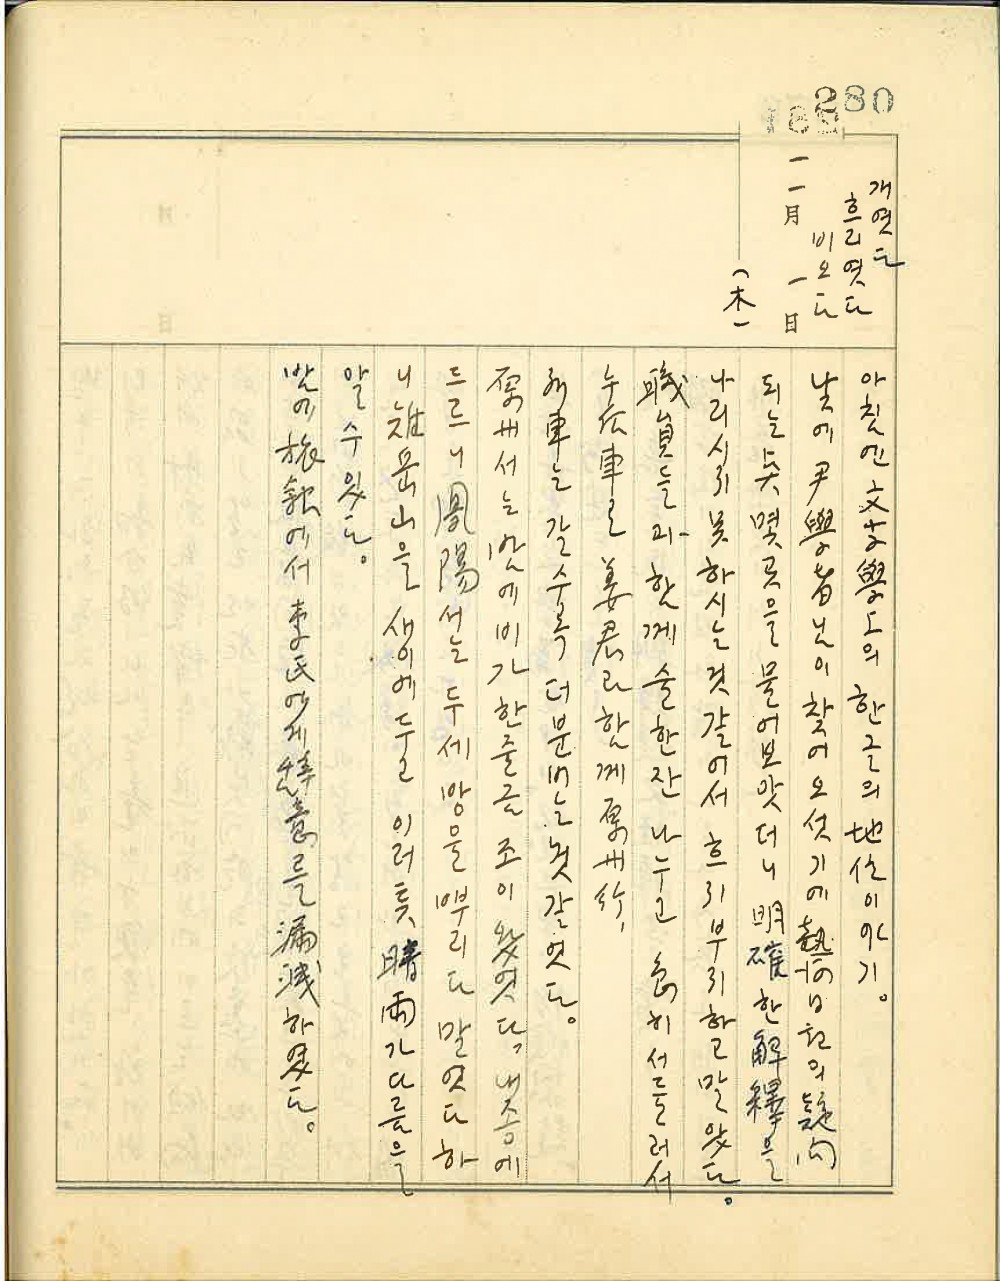 280
개엿다
흐리엿다
비오다
一一月 一日
(木)
아침엔 文字學도의 한글의 地位이야기。
낮에 尹學者님이 찾어오섯기에 熱河日記의 疑問
되는 곳 몇곳을 물어보앗더니 明確한 解釋을
나리시지 못하시는것 같어서 흐리부리하고 말았다。
職員들과 함께 술한잔 나누고 급히 서둘러서
누 车로 姜君과 함께 原州行,
列車는 갈수록 더 분비는것 같엇다。
原州서는 밤에 비가 한줄금 조이 왔엿다, 내종에
드르니 鳳陽서는 두세방울 뿌리다 말엇다 하
니 雉岳山을 새이에 두고 이러틋 晴雨가 다름을
알 수 있다。
밤에 旅館에서 李氏에게 를 하였다。